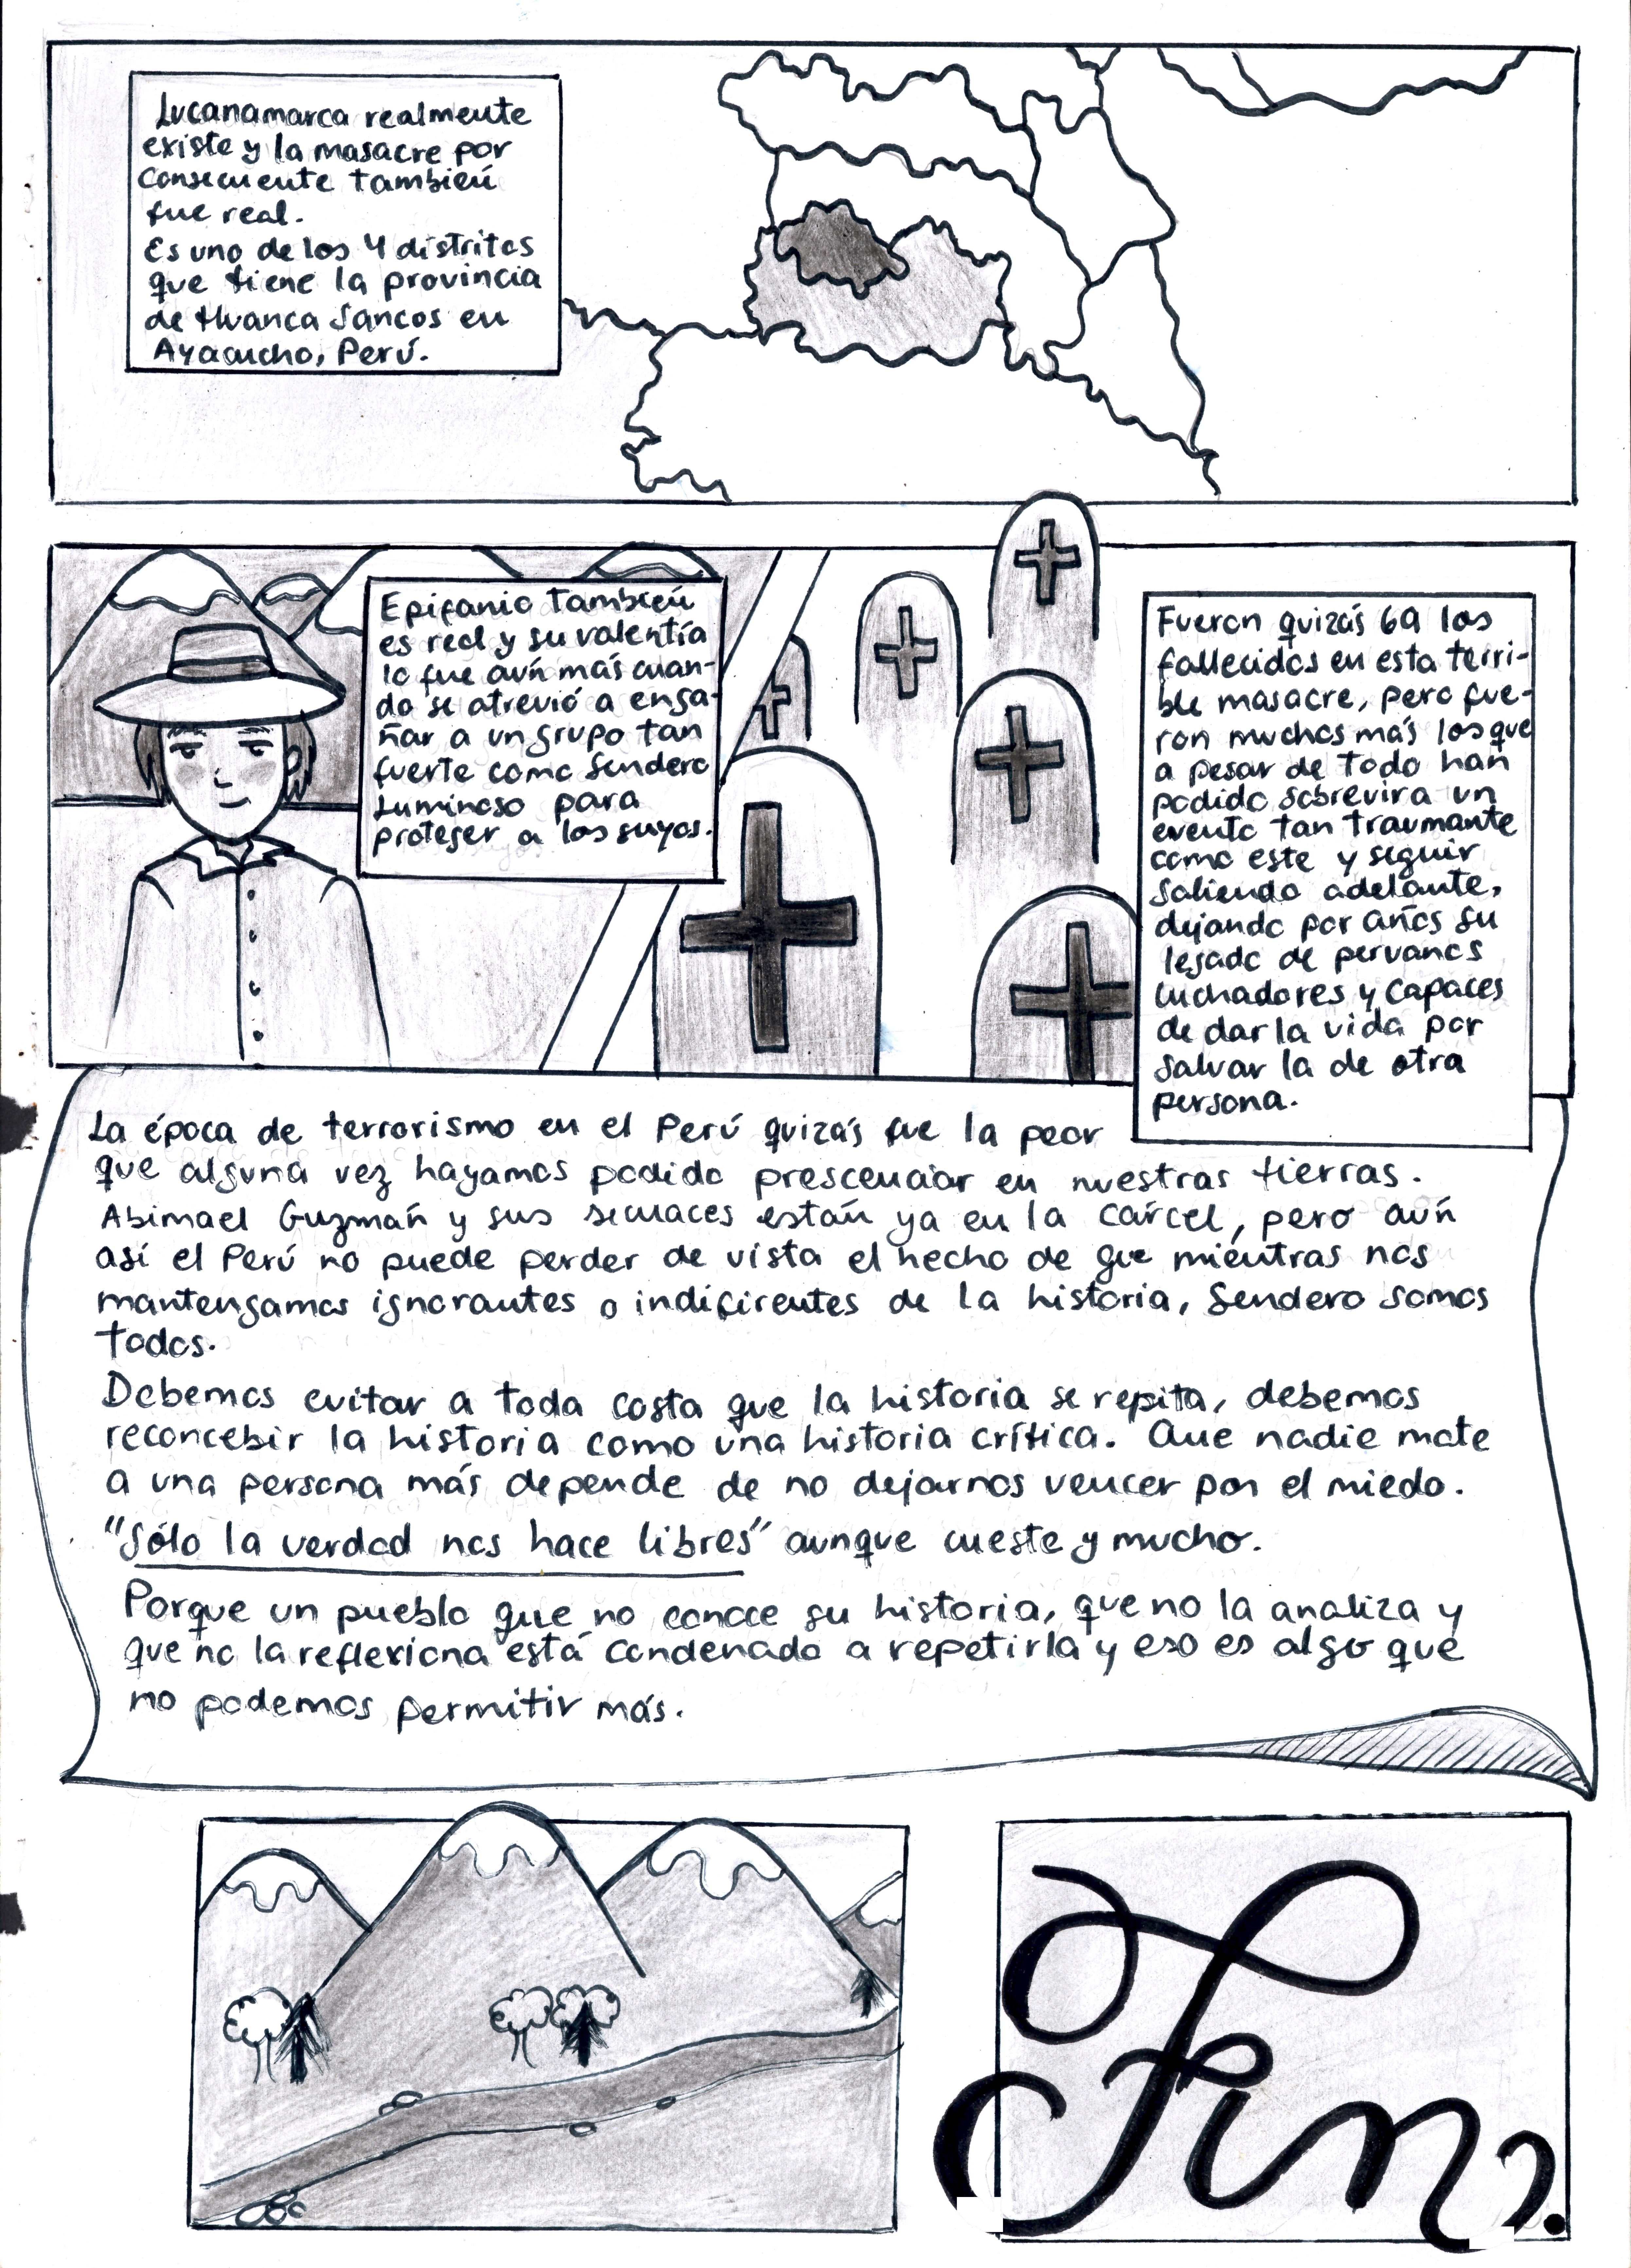 Lucanamarca realmente
existe y la masacre por
consecuente también
fue real.
Es uno de los 4 distritos
que tiene la provincia
de Huanca Sancos en
Ayacucho, Perú.
Epifanio también
es real y su valentía
lo fue aún más cuan-
do se atrevió a enga-
ñar a un grupo tan
fuerte como Sendero
Luminoso para
proteger a los suyos.
Fueron quizás 69 los
fallecidos en esta terri-
ble masacre, pero fue-
ron muchos más los que
a pesar de todo han
podido sobrevivir a un
evento tan traumante
como este y seguir
saliendo adelante,
dejando por años su
legado de peruanos
luchadores y capaces
de dar la vida por
salvar la de otra
persona.
La época de terrorismo en el Perú quizás fue la peor
que alguna vez hayamos podido prescenciar en nuestras tierras.
Abimael Guzmán y sus secuaces están ya en la cárcel, pero aún
así el Perú no puede perder de vista el hecho de que mientras nos
mantengamos ignorantes o indiferentes de la historia, Sendero somos
todos.
Debemos evitar a toda costa que la historia se repita, debemos
reconcebir la historia como una historia crítica. Que nadie mate
a una persona más depende de no dejarnos vencer por el miedo.
"Sólo la verdad nos hace libres" aunque cueste y mucho.
Porque un pueblo que no conoce su historia, que no la analiza y
que no la reflexiona está condenado a repetirla y eso es algo que
no podemos permitir más.
Fin.